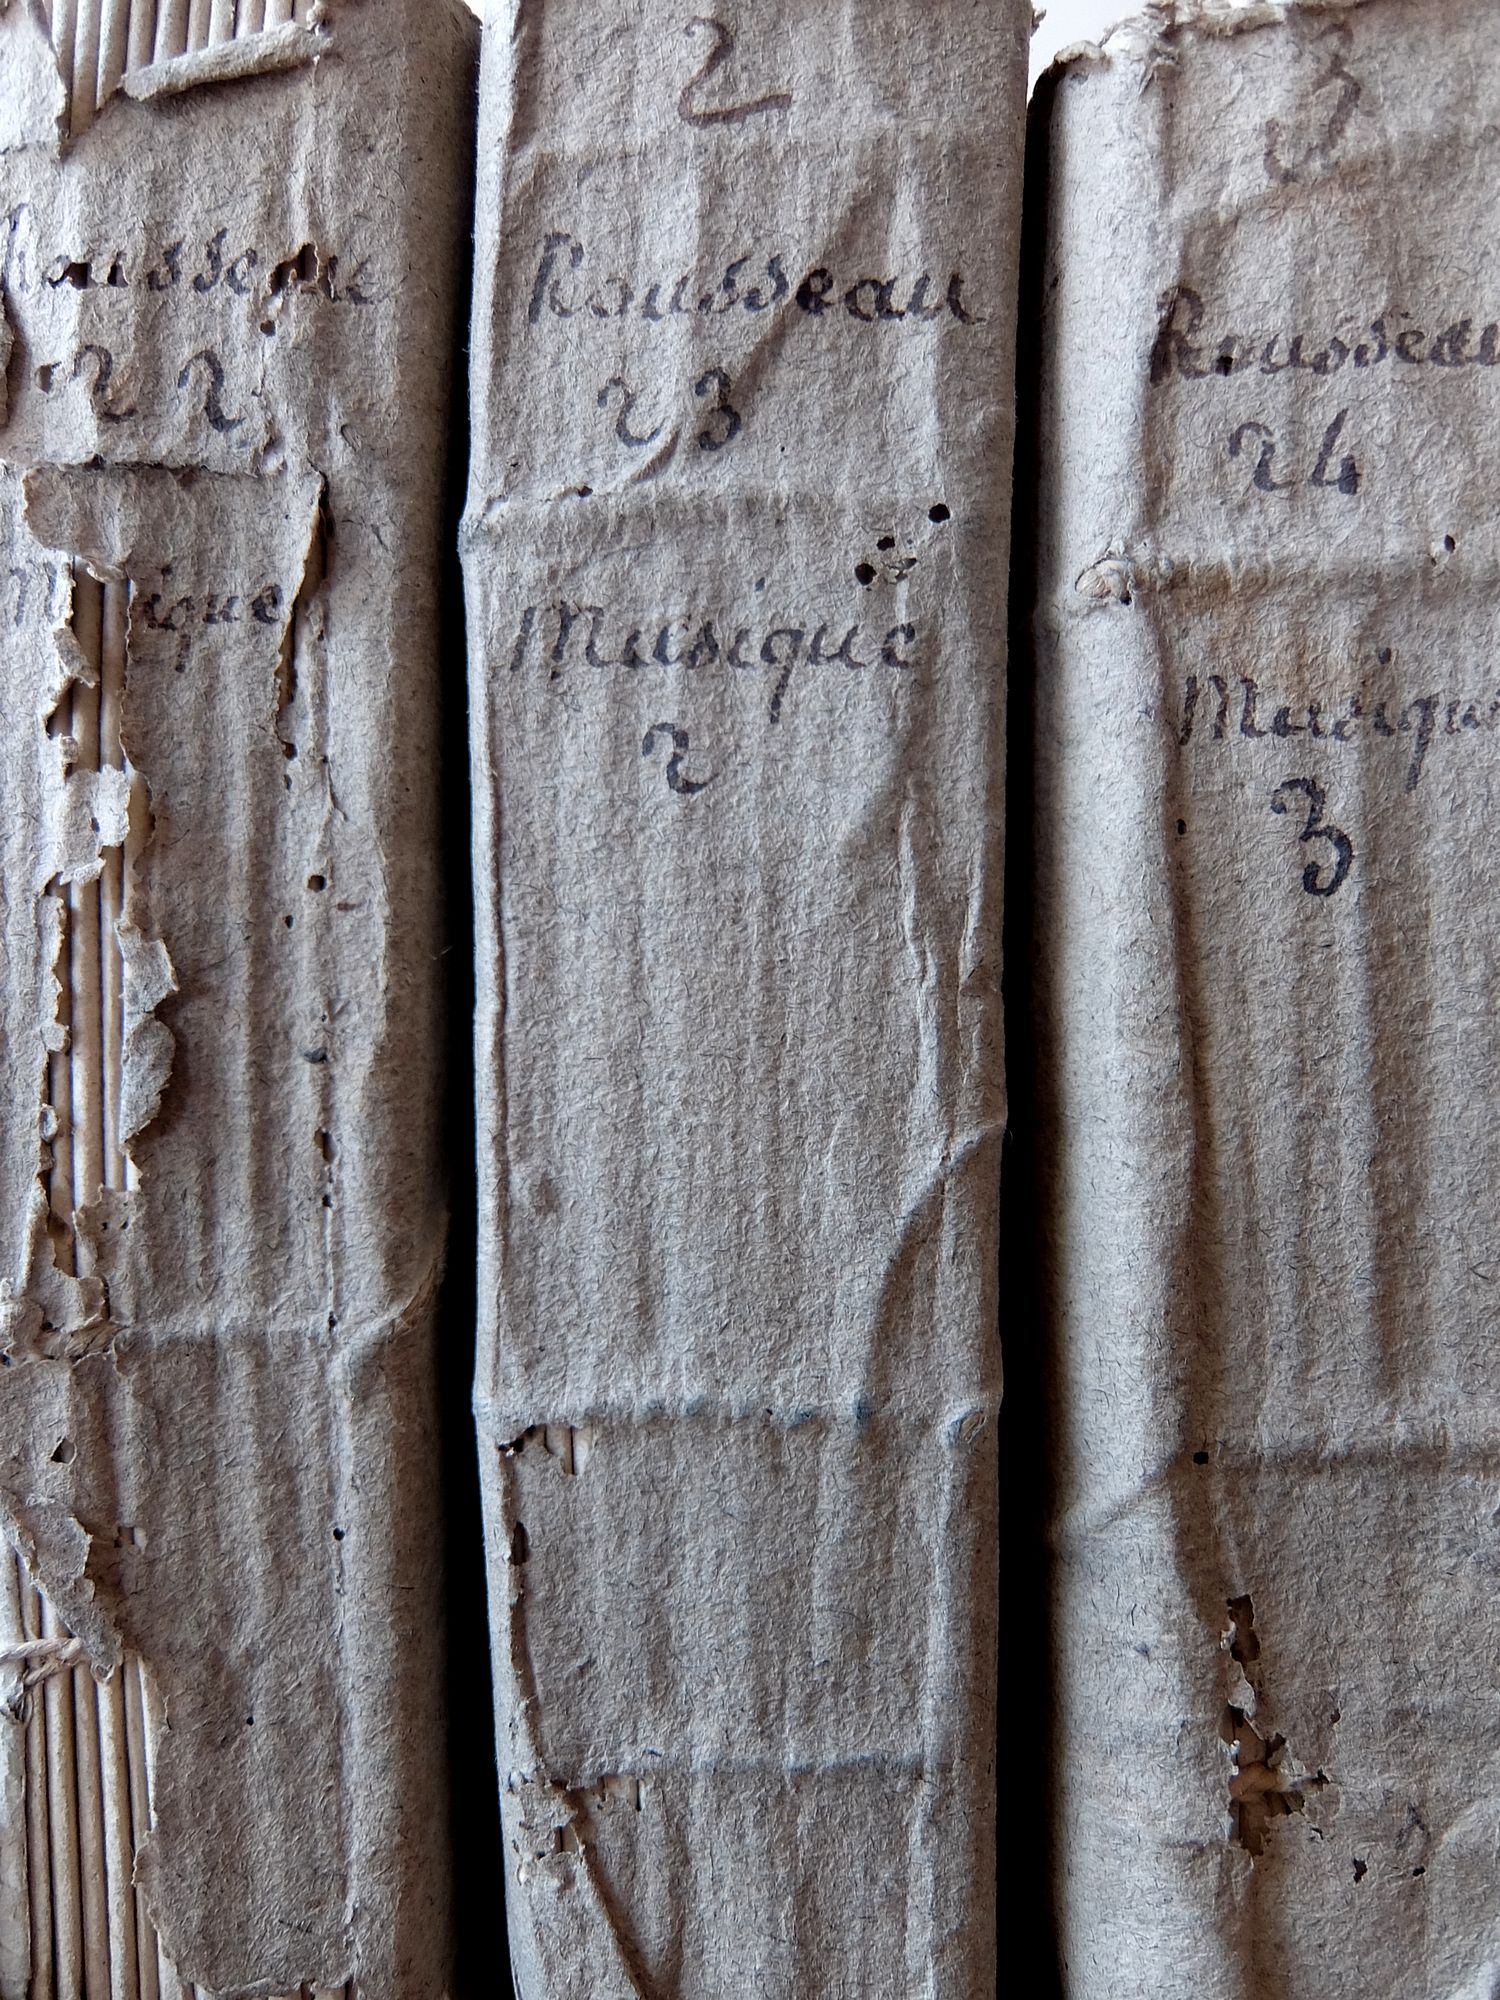 Rousseau
22
Musique
2
Rousseau
23
Musique
2
3
Rousseau
24
Musique
3